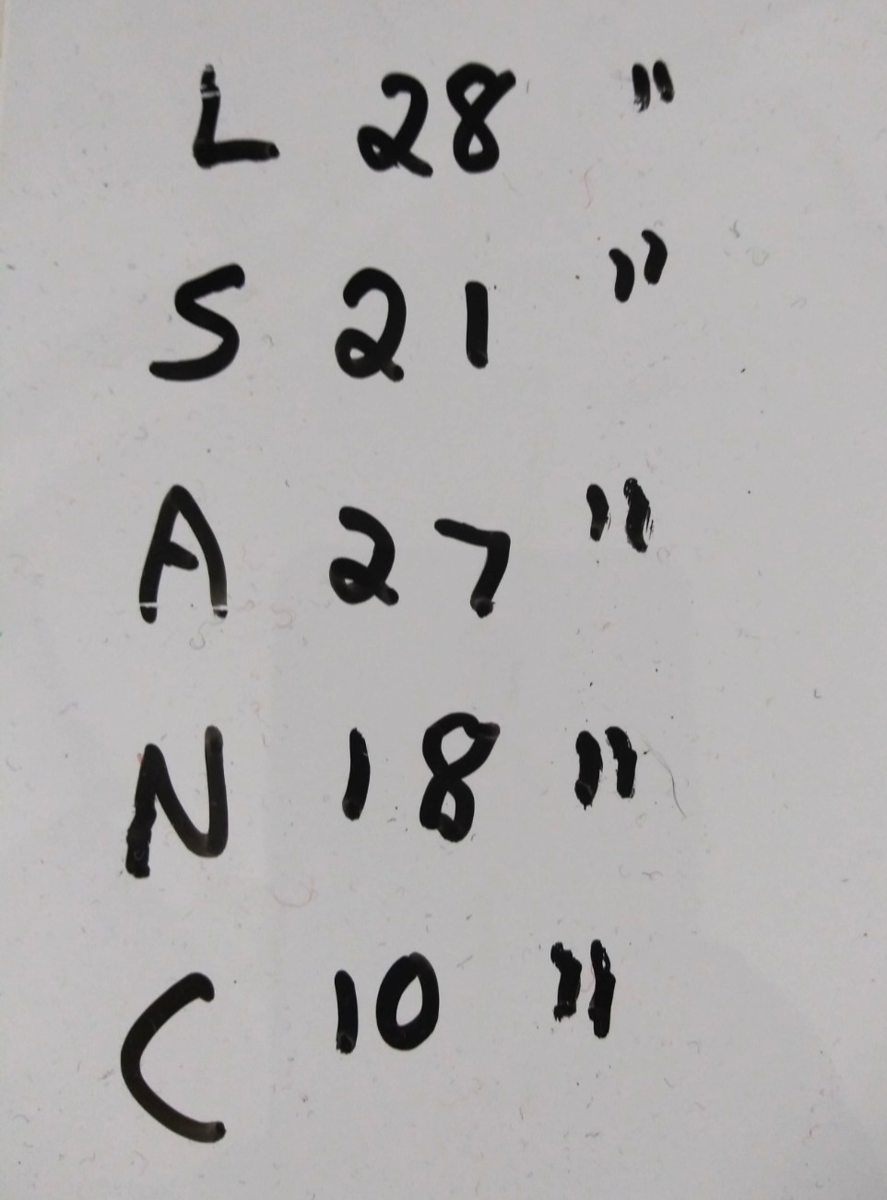 L 28 "
S 21 "
A 27 "
N 18 "
C 10 "